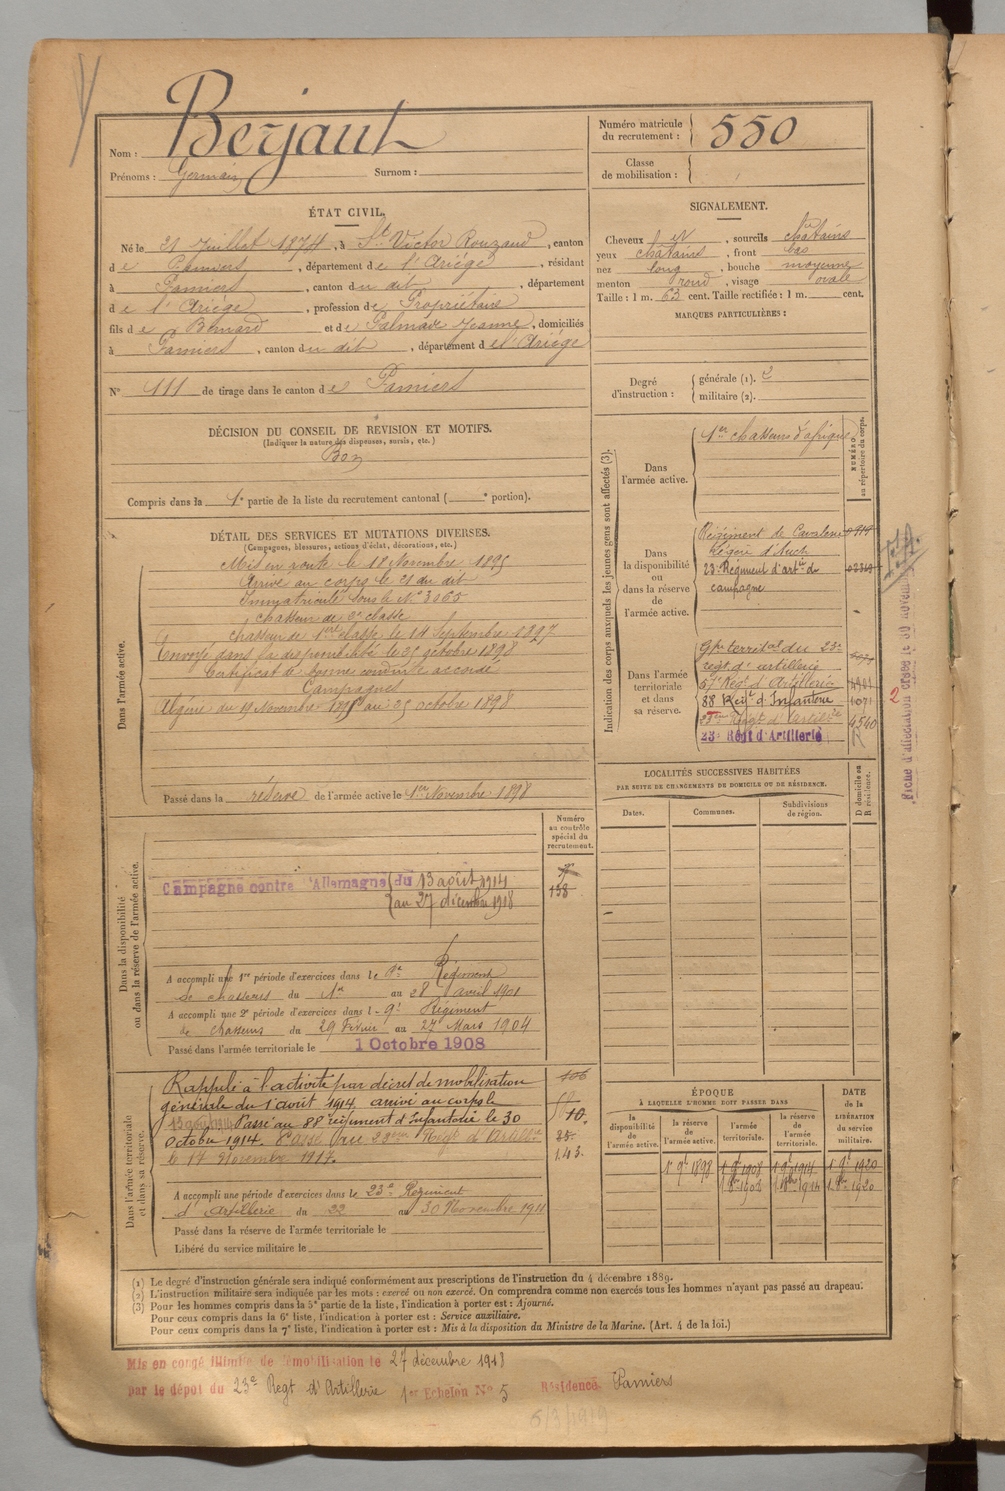 Nom : Berjaut
Prénoms : Germain Surnom :
Numéro matricule du recrutement : 550
Classe de mobilisation :
ÉTAT CIVIL.
Né le 21 Juillet 1874, à St Victor Rouzaud, canton
de Pamiers, département de l'Ariège, résidant
à Pamiers, canton du dit, département
de l'Ariège, profession de Propriétaire
fils de Bernard et de Galmade Jeanne, domiciliés
à Pamiers, canton du dit, département de l'Ariège
N° 111 de tirage dans le canton de Pamiers
SIGNALEMENT.
Cheveux et, sourcils chatains
yeux chatains, front bas
nez long, bouche moyenne
menton rond, visage ovale
Taille : 1 m. 63 cent. Taille rectifiée : 1 m. cent.
MARQUES PARTICULIÈRES :
Degré d'instruction : générale (1). 2
militaire (2).
DÉCISION DU CONSEIL DE RÉVISION ET MOTIFS.
(Indiquer la nature des dispenses, sursis, etc.)
Bon
Compris dans la 1e partie de la liste du recrutement cantonal ( e portion).
DÉTAIL DES SERVICES ET MUTATIONS DIVERSES.
(Campagnes, blessures, actions d'éclat, décorations, etc.)
Dans l'armée active.
Mis en route le 18 Novembre 1895
Arrivé au corps le 21 du dit
Immatriculé sous le N° 3065
chasseur de 2e classe
chasseur de 1ère classe le 14 Septembre 1897
Envoyé dans la disponibilité le 25 octobre 1898
Certificat de bonne conduite accordé
Campagnes
Algérie du 19 Novembre 1895 au 25 octobre 1898
Passé dans la réserve de l'armée active le 1er Novembre 1898
Indication des corps auxquels les jeunes gens sont affectés (3).
NUMÉRO au répertoire du corps.
Dans l'armée active.
1er chasseurs d'afrique
Dans la disponibilité ou dans la réserve de l'armée active.
Régiment de Cavalerie
légère d'Auch
23e Régiment d'artie de
campagne
Dans l'armée territoriale et dans sa réserve.
Gpe territal du 23e
régt d'artillerie
57e Régt d'Artillerie
88 Regt d'Infanterie 1071
23ème Régt d'Artillie 4540
23e Régt d'Artillerie
LOCALITÉS SUCCESSIVES HABITÉES
PAR SUITE DE CHANGEMENTS DE DOMICILE OU DE RÉSIDENCE.
D domicile ou R résidence.
Dates. Communes. Subdivisions de région.
Numéro au contrôle spécial du recrutement.
158
Dans la disponibilité ou dans la réserve de l'armée active.
Campagne contre l'Allemagne du 13 août 1914
au 27 décembre 1918
A accompli une 1re période d'exercices dans le 9e Régiment
de chasseurs du 1er au 28 avril 1901
A accompli une 2e période d'exercices dans l- 9e Régiment
de chasseurs du 29 Février au 27 Mars 1904
Passé dans l'armée territoriale le 1 Octobre 1908
Dans l'armée territoriale et dans sa réserve.
Rappelé à l'activité par décret de mobilisation
générale du 1 août 1914, arrivé au corps le
13 août 1914. Passé au 88 régiment d'Infanterie le 30
Octobre 1914. Passé au 23ème Régt d'Artillie
le 17 Novembre 1917.
106
10.
25.
143.
A accompli une période d'exercices dans le 23e Régiment
d'Artillerie du 22 au 30 Novembre 1911
Passé dans la réserve de l'armée territoriale le
Libéré du service militaire le
ÉPOQUE
À LAQUELLE L'HOMME DOIT PASSER DANS
la disponibilité de l'armée active.
la réserve de l'armée active.
l'armée territoriale.
la réserve de l'armée territoriale.
DATE de la LIBÉRATION du service militaire.
1 9e 1898 1 9e 1908 1 9e 1914 1 9e 1920
(1) Le degré d'instruction générale sera indiqué conformément aux prescriptions de l'instruction du 4 décembre 1889.
(2) L'instruction militaire sera indiquée par les mots : exercé ou non exercé. On comprendra comme non exercés tous les hommes n'ayant pas passé au drapeau.
(3) Pour les hommes compris dans la 5e partie de la liste, l'indication à porter est : Ajourné.
Pour ceux compris dans la 6e liste, l'indication à porter est : Service auxiliaire.
Pour ceux compris dans la 7e liste, l'indication à porter est : Mis à la disposition du Ministre de la Marine. (Art. 4 de la loi.)
Mis en congé illimité de démobilisation le 27 décembre 1918
par le dépôt du 23e Regt d'Artillerie 1er Echelon N° 5 Résidence Pamiers
6/3/1919